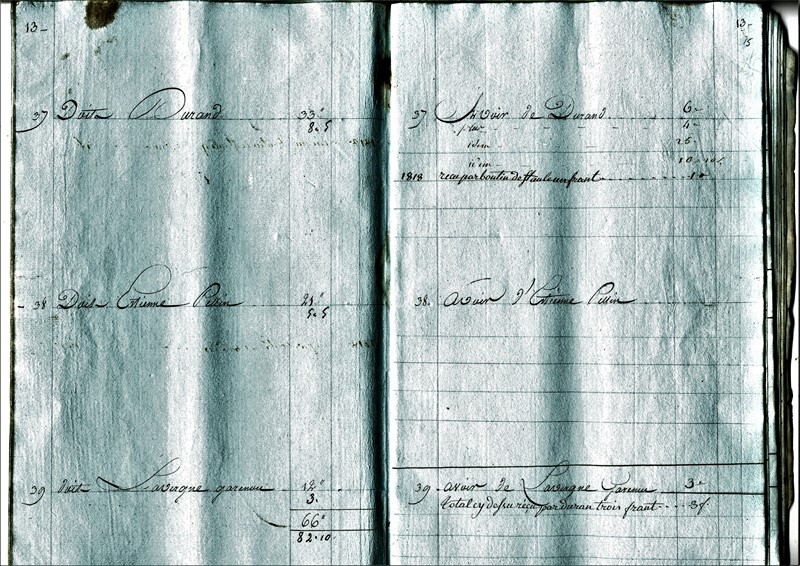 13
37 Doit Durand 33"
8. 5
38 Doit Estienne Pillin 21"
5. 5
39 doit Lavergne garenou 12"
3.
66"
82. 10
13
15
37 Avoir de Durand 6
plus 4
idem 25
idem 10. 10
1818 recu par boutin un frant 1
38. avoir d'Estienne Pillin
39 avoir de Lavergne Garenou 3
total cy desu recu par duran trois frant 3f